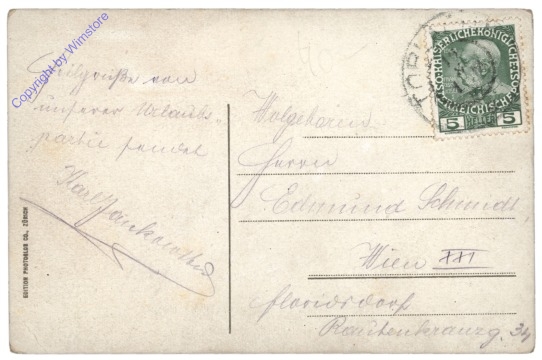 Copyright by Wimstore
von
unserer Urlaubs-
partie sendet
Karl
EDITION PHOTOGLOB CO., ZÜRICH
KAISERLICHE KÖNIGLICHE ÖSTERREICHISCHE POST
5 HELLER 5
Wolgeboren
Herrn
Edmund Schmidt,
Wien XXI
Floridsdorf
Rautenkranzg. 34